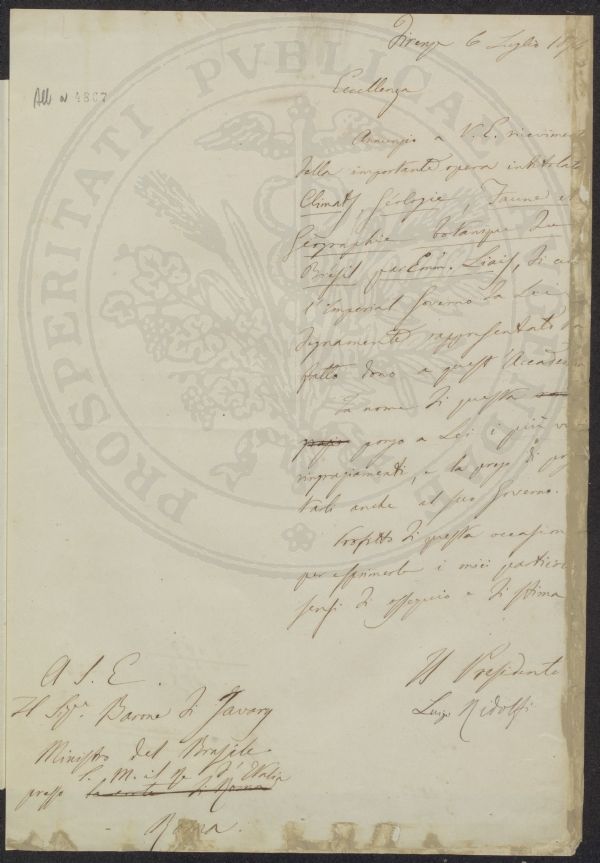 PROSPERITATI PVBLICAE
Firenze 6 Luglio
All n 4807
Eccellenza
Annunzio a V. E.
della importante opera
Climats, Géologie, Faune et
Géographie botanique du
Brésil par Emm. Liais, di cui
l'Imperial Governo da Lei
degnamente rappresentato ha
fatto dono a quest'Accademia
In nome di questa
porgo a Lei i più
ringraziamenti, e la prego di
tali anche al suo Governo.
Profitto di questa occasione
per esprimerle i miei
sensi di ossequio e di stima
Il Presidente
Luigi Ridolfi
A S. E.
Il Sigr. Barone di Javary
Ministro del Brasile
S. M. il Re d'Italia
presso la corte di Roma
Roma.